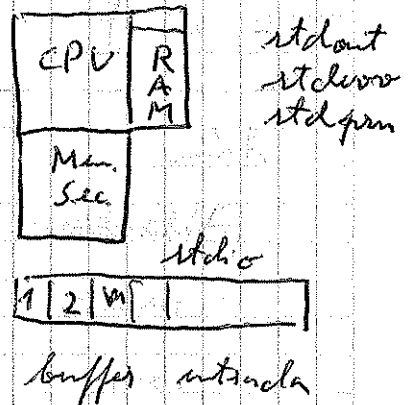 CPU
RAM
stdout
stderr
stdprn
Mem.
Sec.
stdio
1 2 \n
buffer entrada